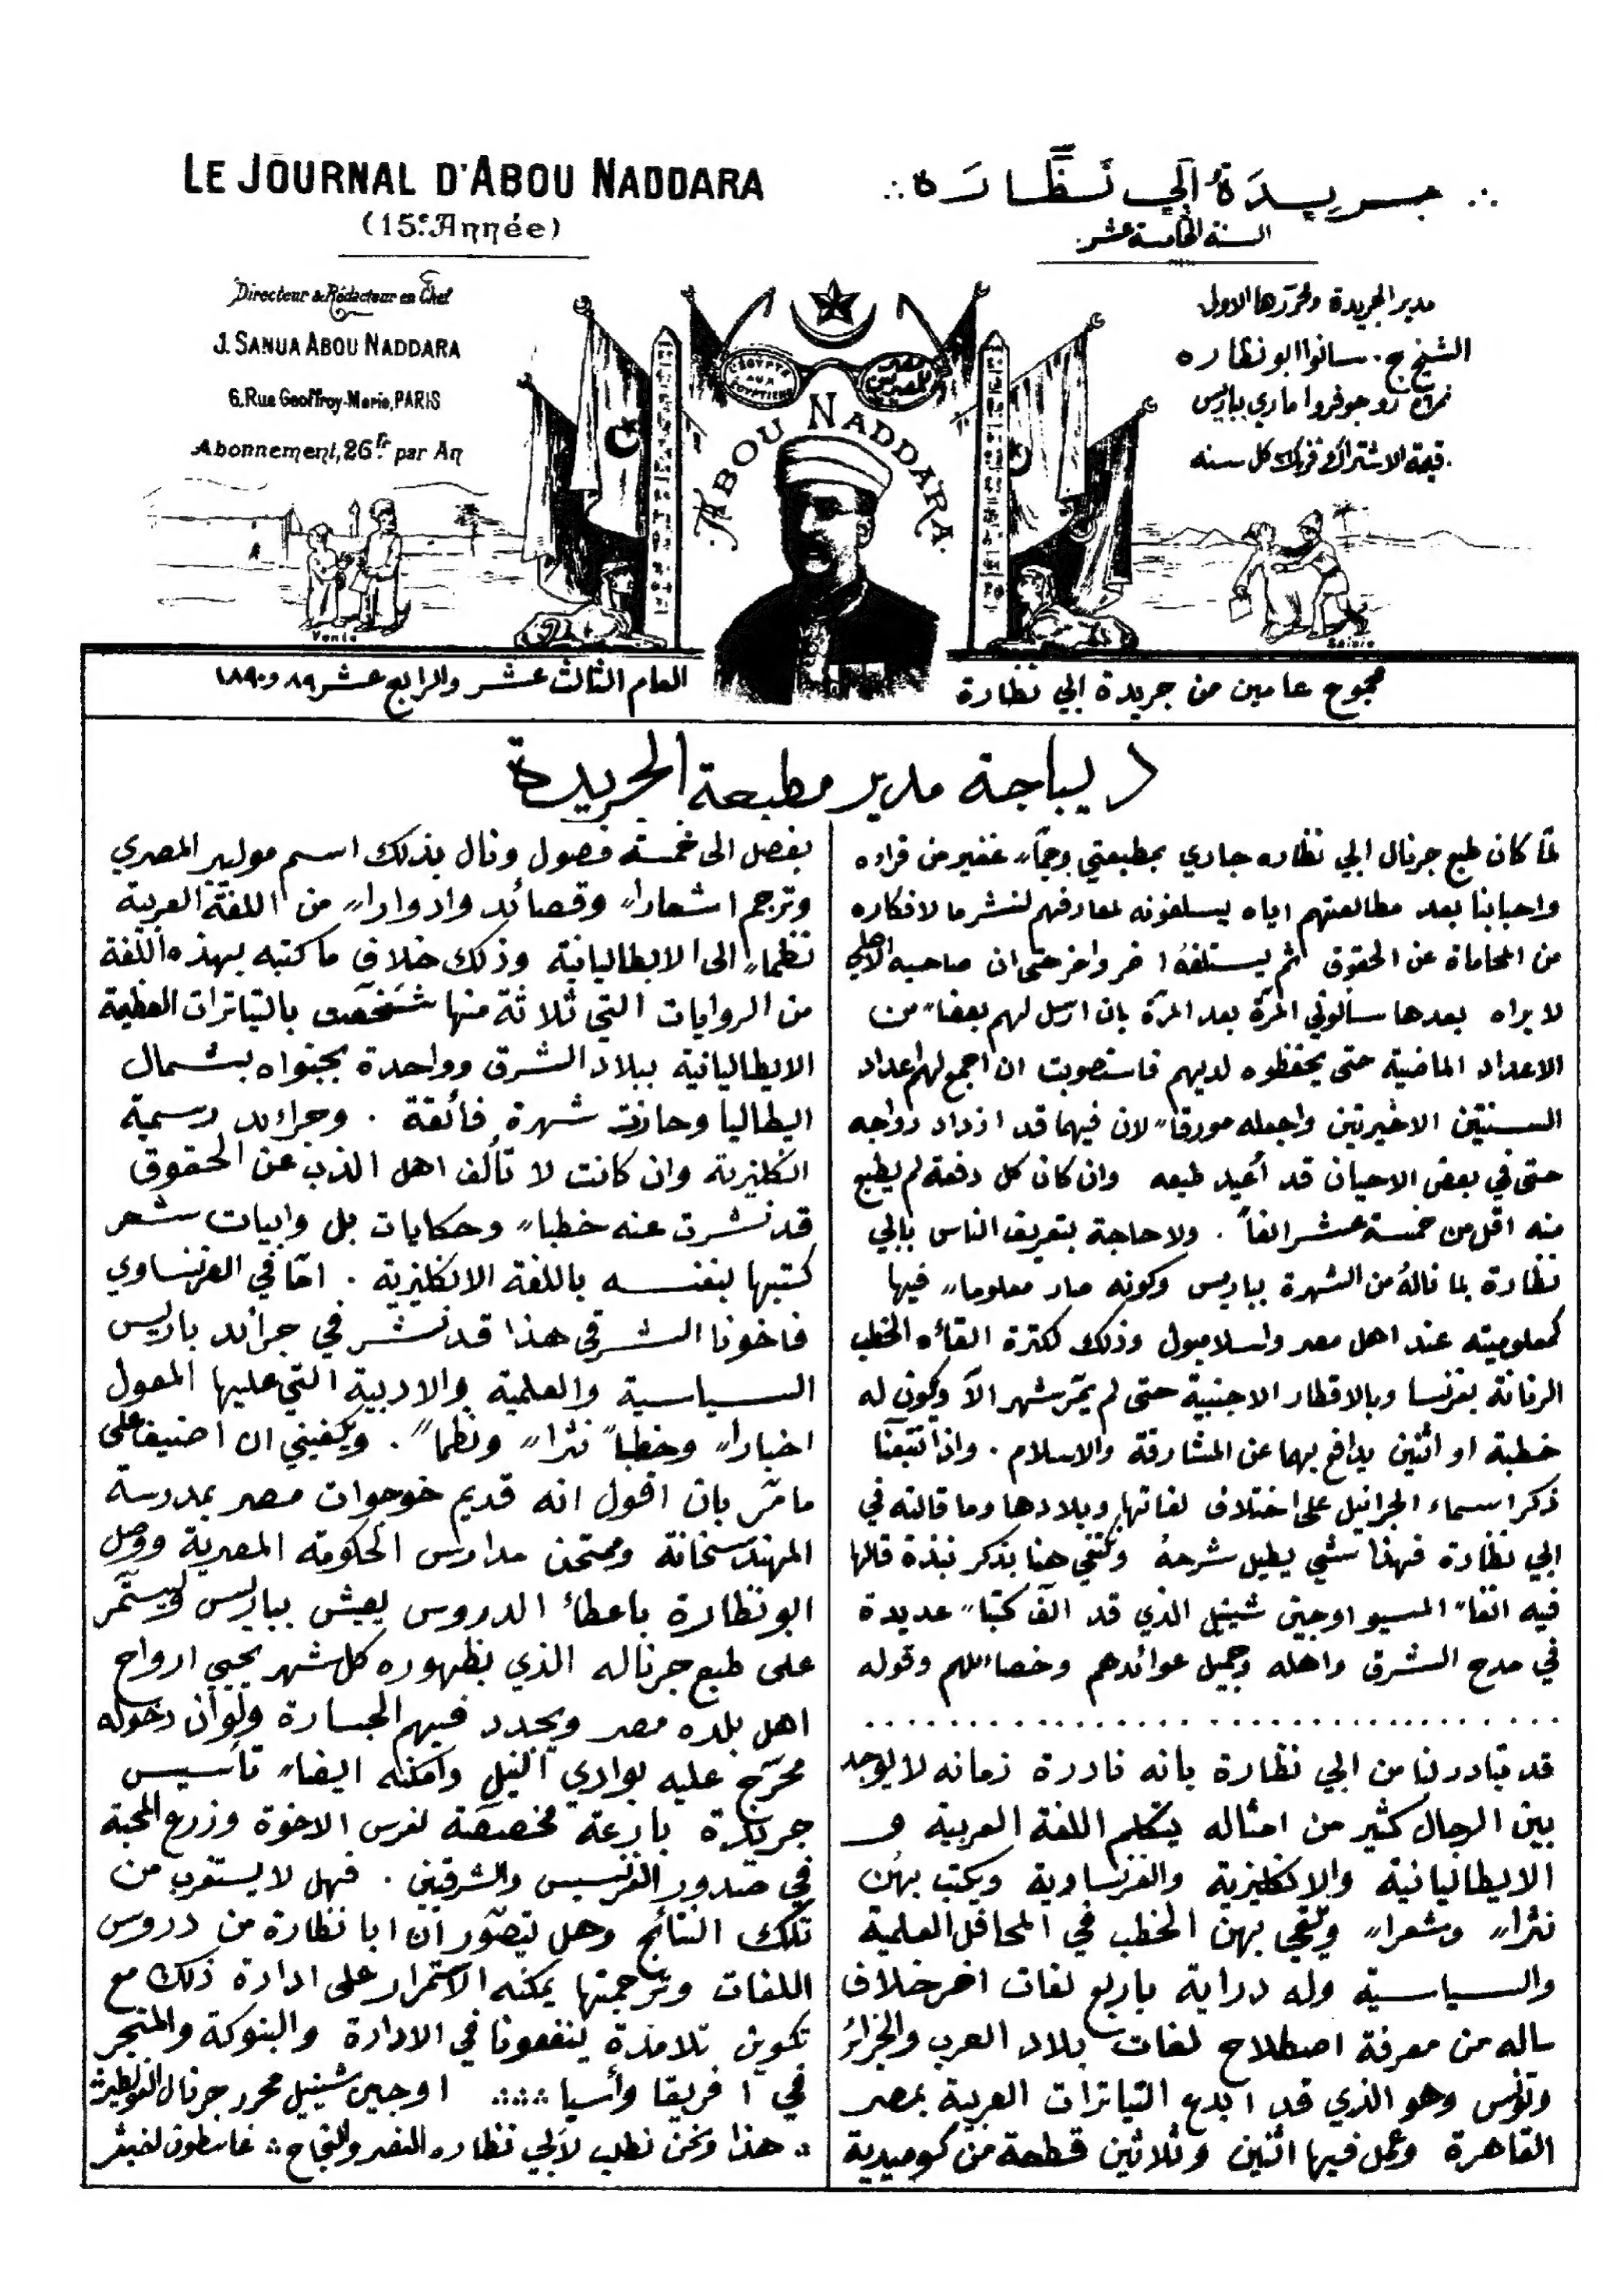 LE JOURNAL D'ABOU NADDARA
(15e Année)
Directeur & Rédacteur en Chef
J. SANUA ABOU NADDARA
6, Rue Geoffroy-Marie, PARIS
Abonnement, 26fr. par An
جريدة أبي نظارة
السنة الخامسة عشر
مدير الجريدة ومحررها الاول
الشيخ ج. سانوا ابو نظاره
نمرة ٦ رو جوفروا ماري بباريس
قيمة الاشتراك فرنك كل سنه
L'EGYPTE AUX EGYPTIENS
مصر للمصريين
ABOU NADDARA
Vente
Saisie
مجموع عامين من جريدة ابي نظارة
العام الثالث عشر والرابع عشر ٨٩ و ١٨٩٠
ديباجة مدير مطبعة الجريدة
لمّا كان طبع جرنال ابي نظاره جاري بمطبعتي وجمّاً غفير من قراه
واحبابنا بعد مطالعتهم اياه يسلفونه لمعارفهم لنشر ما لافكاره
من المحاماة عن الحقوق ثم يستلفهُ اخر واخر حتى ان صاحبه الاصلي
لا يراه بعدها سألوني المرّة بعد المرّة بان ارسل لهم بعضاً من
الاعداد الماضية حتى يحفظوه لديهم فاستصوبت ان اجمع لهم اعداد
السنتين الاخيرتين واجعله مورقاً لان فيهما قد ازداد رواجه
حتى في بعض الاحيان قد أعيد طبعه وان كان كل دفعة لم يطبع
منه اقل من خمسة عشر الفاً . ولا حاجة بتعريف الناس بابي
نظارة بما نالهُ من الشهرة بباريس وكونه صار معلوماً فيها
كمعلوميته عند اهل مصر واسلامبول وذلك لكثرة القائه الخطب
الرنانة بفرنسا وبالاقطار الاجنبية حتى لم يمرّ شهر الاّ ويكون له
خطبة او اثنين يدافع بهما عن المشارقة والاسلام . واذا تتبعنا
ذكر اسماء الجرانيل على اختلاف لغاتها وبلادها وما قالته في
ابي نظارة فهذا شي يطيل شرحهُ ونكتفي هنا بذكر نبذة قالها
فيه انفاً المسيو اوجين شينيل الذي قد الّف كتباً عديدة
في مدح الشرق واهله وجميل عوائدهم وخصائلهم وقوله
. . . . . . . . . . . . . . . . . . . . . . . . . . . . . .
قد تبادر لنا من ابي نظارة بانه نادرة زمانه لا يوجد
بين الرجال كثير من امثاله يتكلم اللغة العربية و
الايطاليانية والانكليزية والفرنساوية ويكتب بهُن
نثراً وشعراً ويلقي بهن الخطب في المحافل العلمية
والسياسية وله دراية باربع لغات اخر خلاف
ماله من معرفة اصطلاح لغات بلاد العرب والجزائر
وتونس وهو الذي قد أبدع التياترات العربية بمصر
القاهرة وعمل فيها اثنين وثلاثين قطعة من كوميدية
بفصل الى خمسة فصول ونال بذلك اسم مولير المصري
وترجم اشعاراً وقصائد وادواراً من اللغة العربية
نظماً الى الايطاليانية وذلك خلاف ما كتبه بهذه اللغة
من الروايات التي ثلاثة منها شخصت بالتياترات العظيمة
الايطاليانية ببلاد الشرق وواحدة بجنواه بشمال
ايطاليا وحازت شهرة فائقة . وجرائد رسمية
انكليزية وان كانت لا تألف اهل الذب عن الحقوق
قد نشرت عنه خطباً وحكايات بل وابيات شعر
كتبها بنفسه باللغة الانكليزية . امّا في الفرنساوي
فاخونا الشرقي هذا قد نشر في جرائد باريس
السياسية والعلمية والادبية التي عليها المعول
اخباراً وخطباً نثراً ونظماً . ويكفيني ان اضيف على
ما مرّ بان اقول انه قديم خوجوات مصر بمدرسة
المهندسخانة وممتحن مدارس الحكومة المصرية
ابو نظارة باعطاء الدروس يعيش بباريس ويستمر
على طبع جرناله الذي بظهوره كل شهر يحيي ارواح
اهل بلده مصر ويجدد فيهم الجسارة ولو ان دخوله
محرّج عليه بوادي النيل وامكنه ايضاً تأسيس
جريدة بارعة مخصصة لغرس الاخوة وزرع المحبة
في صدور الفرنسيس والشرقيين . فهل لا يستغرب من
تلك النتائج وهل يتصوّر ان ابا نظارة من دروس
اللغات وترجمتها يمكنه الاستمرار على ادارة ذلك مع
تكوين تلامذة ينفعونا في الادارة والبنوكة والمتجر
في افريقا وأسيا اوجين شينيل محرر جرنال
هذا ونحن نطلب لأبي نظاره النصر والنجاح